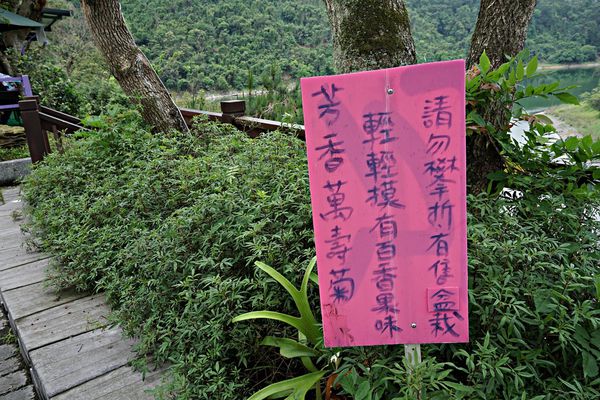 請勿攀折有售盆栽
輕輕摸有百香果味
芳香萬壽菊